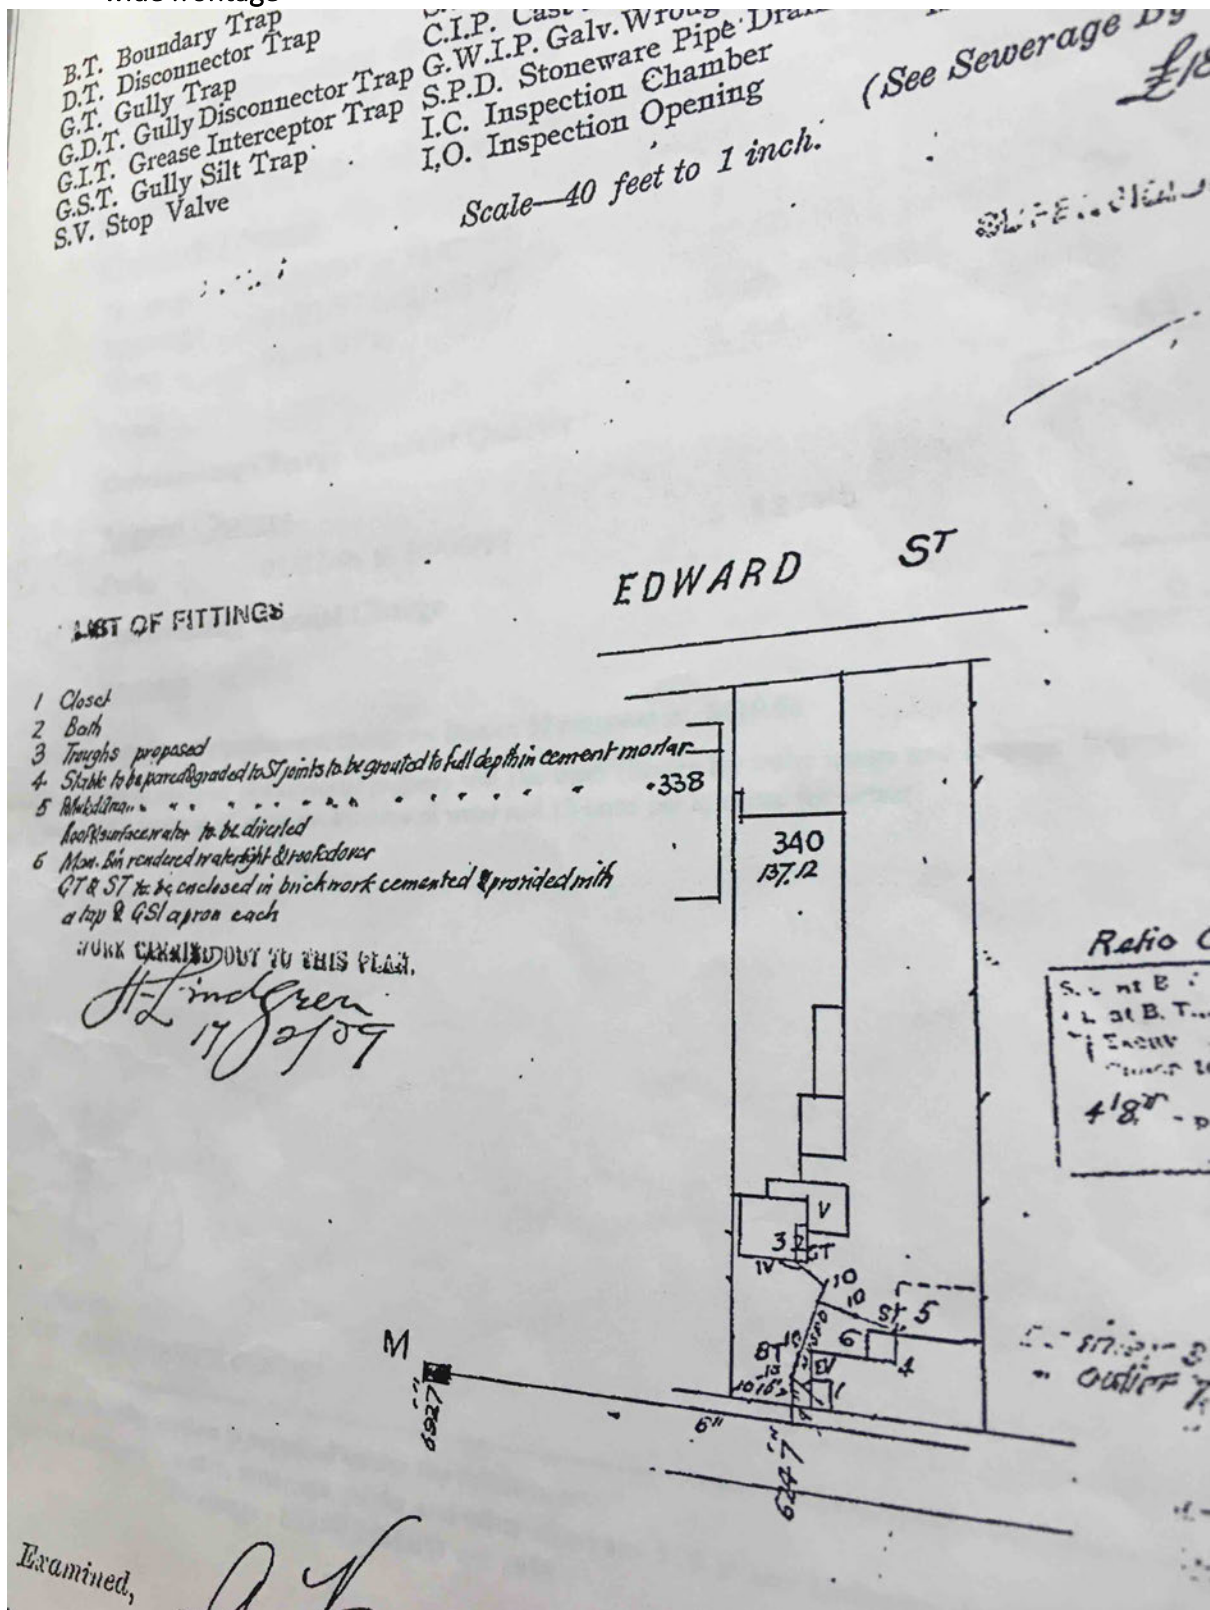 wide frontage
B.T. Boundary Trap
D.T. Disconnector Trap
G.T. Gully Trap
G.D.T. Gully Disconnector Trap
G.I.T. Grease Interceptor Trap
G.S.T. Gully Silt Trap
S.V. Stop Valve
C.I.P. Cast
G.W.I.P. Galv. Wroug
S.P.D. Stoneware Pipe Drain
I.C. Inspection Chamber
I.O. Inspection Opening
(See Sewerage By
£18
Scale—40 feet to 1 inch.
EDWARD ST
LIST OF FITTINGS
1 Closet
2 Bath
3 Troughs proposed
4 Stable to be paved & graded to ST joints to be grouted to full depth in cement mortar
5
Roof & surface water to be diverted
6 Man. Bin rendered watertight & roofed over
GT & ST to be enclosed in brickwork cemented & provided with
a tap & GSI apron each
WORK CARRIED OUT TO THIS PLAN.
H Lindgren
17/2/09
338
340
137.12
Ratio
V
3 2
GT
IV
10
10
ST 5
6
BT
4
1
M
6"
6247
Examined,